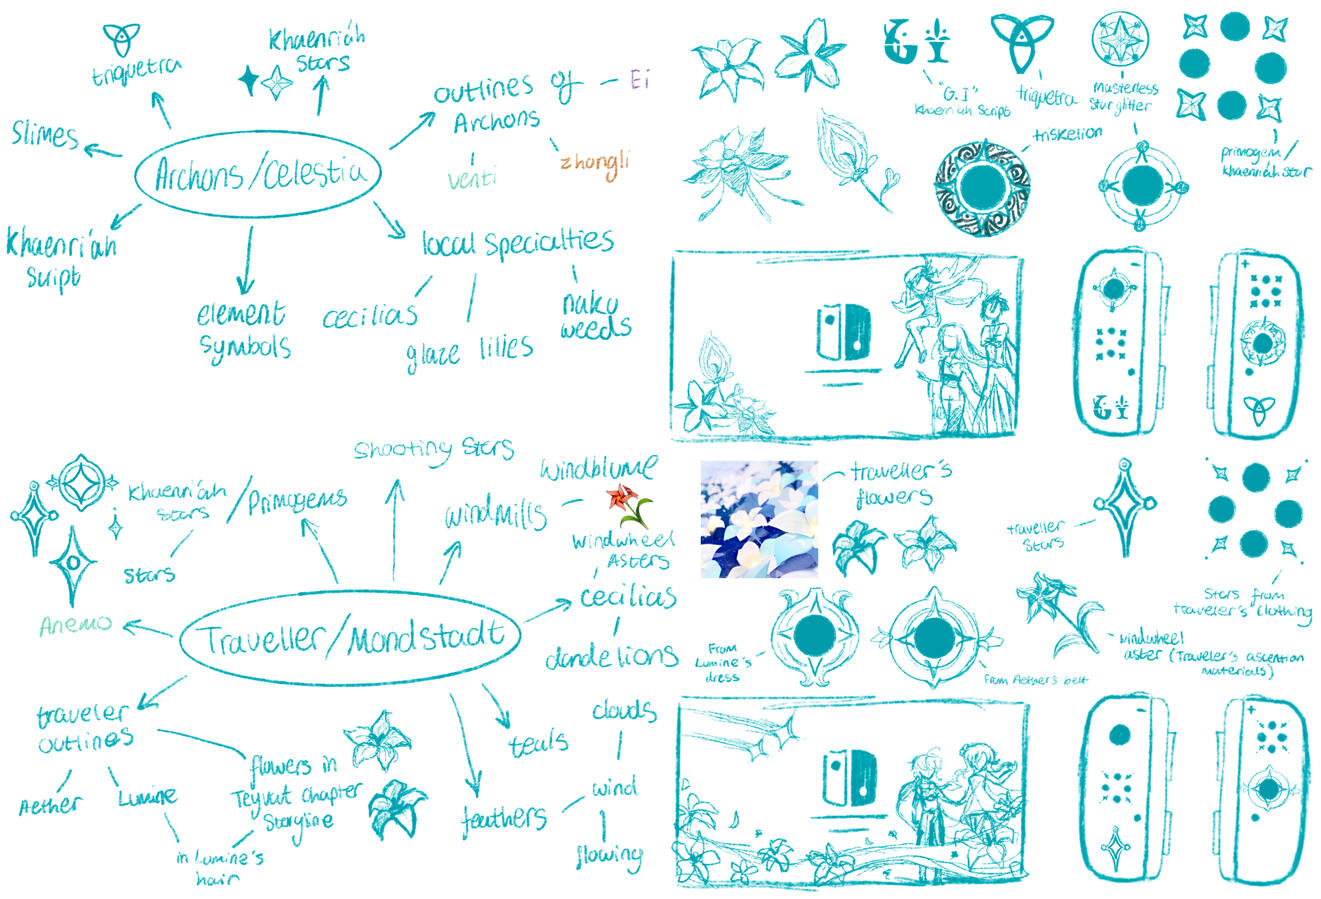 triquetra
Khaenri'ah
Stars
outlines of - Ei
Archons
venti
zhongli
Slimes
Archons/Celestia
Khaenri'ah
Script
element
symbols
local specialties
cecilias
glaze lilies
naku
weeds
"G.I"
Khaenri'ah Script
triquetra
masterless
Starglitter
triskelion
primogem/
Khaenri'ah Star
-
+
Shooting Stars
Khaenri'ah
Stars
/Primogems
Stars
windmills
windblume
windwheel
Asters
cecilias
dandelions
Anemo
Traveller/Mondstadt
traveler
outlines
Aether
Lumine
flowers in
Teyvat Chapter
Storyline
in Lumine's
hair
teals
feathers
clouds
wind
flowing
traveller's
flowers
traveller
Stars
Stars from
traveler's clothing
windwheel
aster (Traveler's ascention
materials)
From
Lumine's
dress
From Aether's belt
-
+